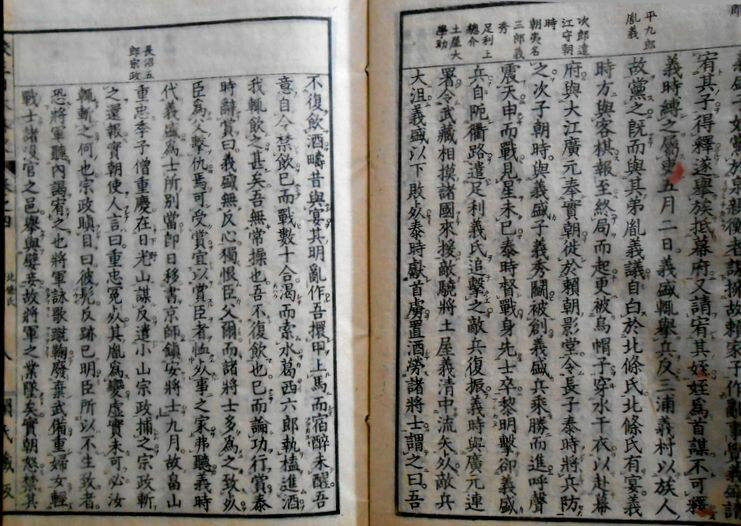 平九郎
胤義
次郎遠
江守朝
時
朝夷名
三郎義
秀
足利上
總介
土屋大
學助
宥其子得釋遂舉族抵幕府又請宥其姪姪爲首謀不可釋
義時縛之屬吏五月二日義盛輒舉兵反三浦義村以族人
故黨之既而與其弟胤義議自白於北條氏北條氏有宴義
時方與客棋報至終局而起更被烏帽子穿水干衣以赴幕
府與大江廣元奉實朝徙於賴朝影堂令長子泰時將兵防
之次子朝時與義盛子義秀鬪被創義盛兵乘勝而進呼聲
震天申而戰見星未已泰時督戰身先士卒黎明擊卻義盛
兵自阨衢路遣足利義氏追擊之敵兵復振義時與廣元連
署令武藏相摸諸國來援敵驍將土屋義清中流矢死敵兵
大沮義盛以下敗死泰時獻首虜置酒勞諸將士謂之曰吾
長沼五
郎宗政
不復飮酒疇昔與宴其明亂作吾擐甲上馬而宿醉未醒吾
意自今禁飮已而戰數十合渴而索水葛西六郎執榼進酒
我輒飮之甚矣吾無常操也吾不復飮也已而論功行賞泰
時辭賞曰義盛無反心獨恨臣父爾而諸將士多爲之致死
臣爲父擊仇焉可受賞宜以賞臣者恤死事之家弗聽義時
代義盛爲士所別當卽日移書京師鎭安將士九月故畠山
重忠季子僧重慶在日光山謀反遣小山宗政捕之宗政斬
之還報實朝使人言曰重忠冤死其胤爲變虛實未可必汝
輒斬之何也宗政瞋目曰彼髡反跡已明臣所以不生致者
恐將軍聽內謁宥之也將軍詠歌蹴鞠廢棄武備重婦女輕
戰士諸沒官之邑舉與嬖妾故將軍之業墜矣實朝怒禁其
北條氏
八
賴氏藏版